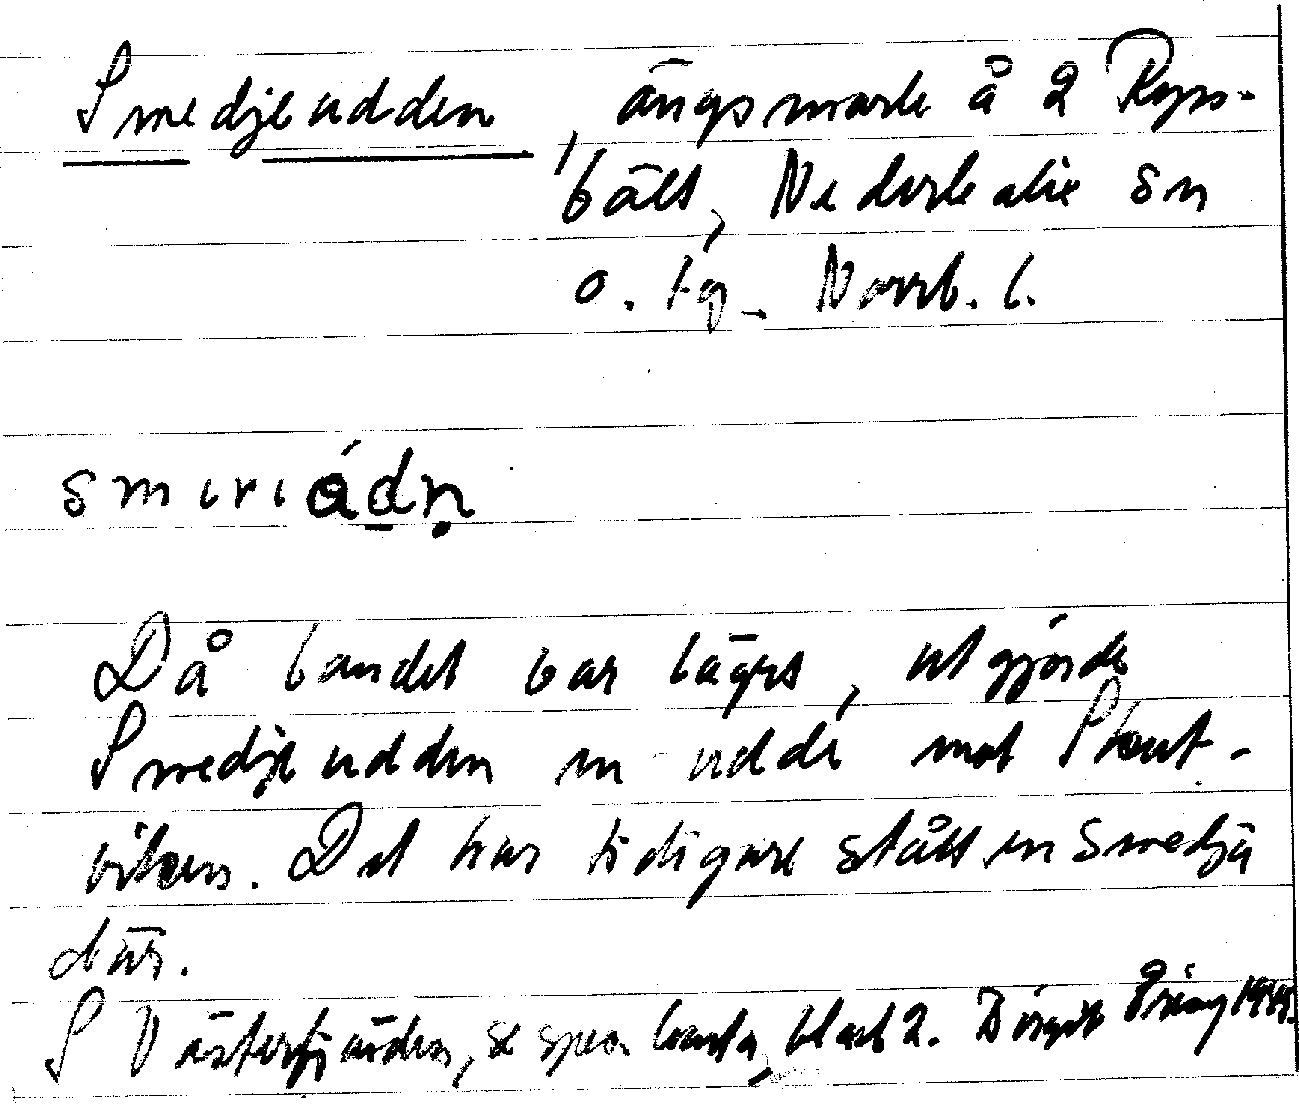 Smedjeudden, ängsmark å 2 Ryss-
bält, Nederkalix sn
o. tg. Norrb. l.
smiriådn
Då landet var lägre, utgjorde
Smedjeudden en udde mot Stout-
viken. Det har tidigare stått en smedja
där.
S Västerfjärden, se spec. karta, blad 2. Birgit Öring